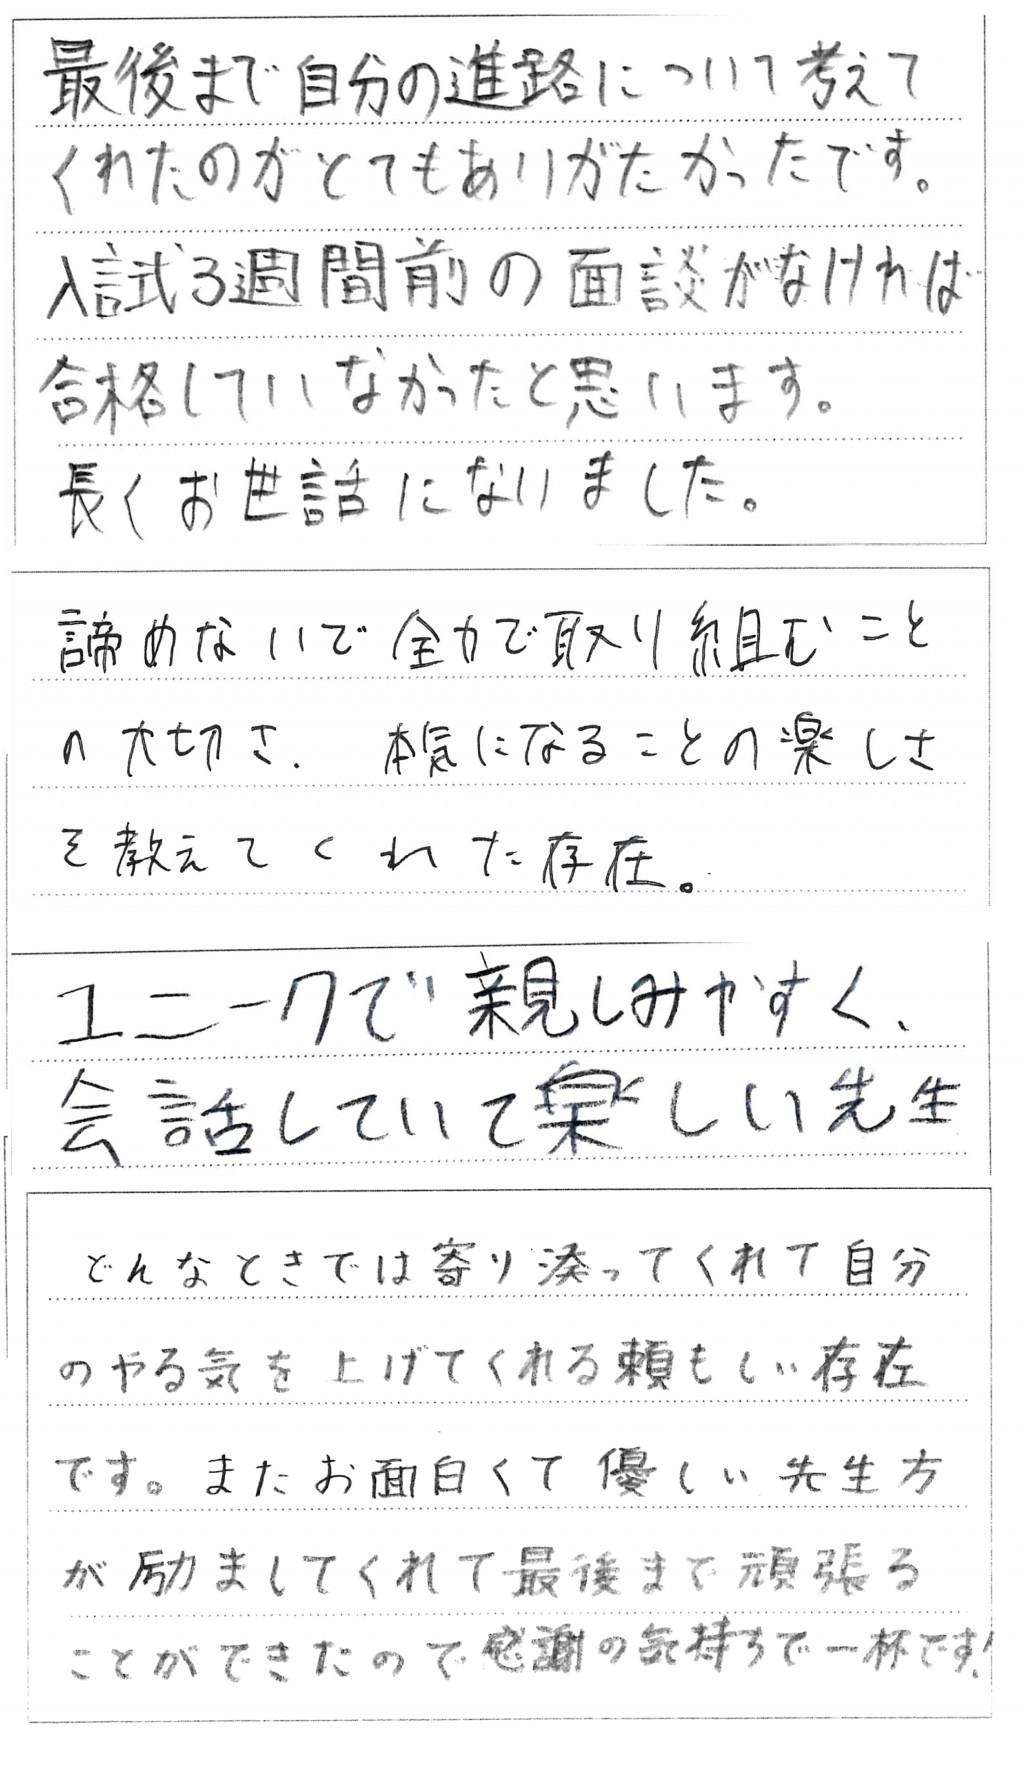 最後まで自分の進路について考えて
くれたのがとてもありがたかったです。
入試3週間前の面談がなければ
合格していなかったと思います。
長くお世話になりました。
諦めないで全力で取り組むこと
の大切さ、本気になることの楽しさ
を教えてくれた存在。
ユニークで親しみやすく、
会話していて楽しい先生
どんなときでは寄り添ってくれて自分
のやる気を上げてくれる頼もしい存在
です。またお面白くて優しい先生方
が励ましてくれて最後まで頑張る
ことができたので感謝の気持ちで一杯です!